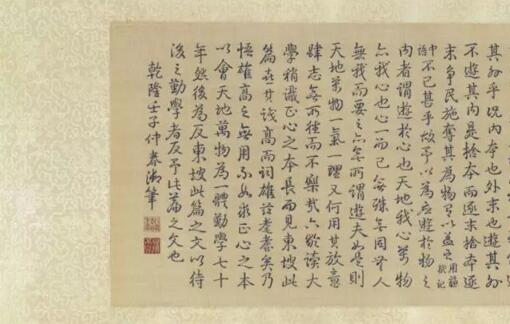 其外乎況內本也外末也遊其外
不遊其內是捨本而逐末捨本逐
末爭民施奪其為物
中語不已甚乎故予以為應遊於物之
內者謂遊於心也天地我心萬物
亦我心也心一而已無殊無同無人
無我而要之亦無所謂遊夫如是則
天地萬物一氣一理又何用其放意
肆志無所往而不樂哉六齡讀大
學稍識正心之本長而見東坡此
篇喜其議高而詞雄茲耄耋矣乃
悟雄高之無用不如求正心之本
以會天地萬物為一體勤學七十
年然後為反東坡此篇之文以待
後之勤學者反予此篇之文也
乾隆壬子仲春御筆